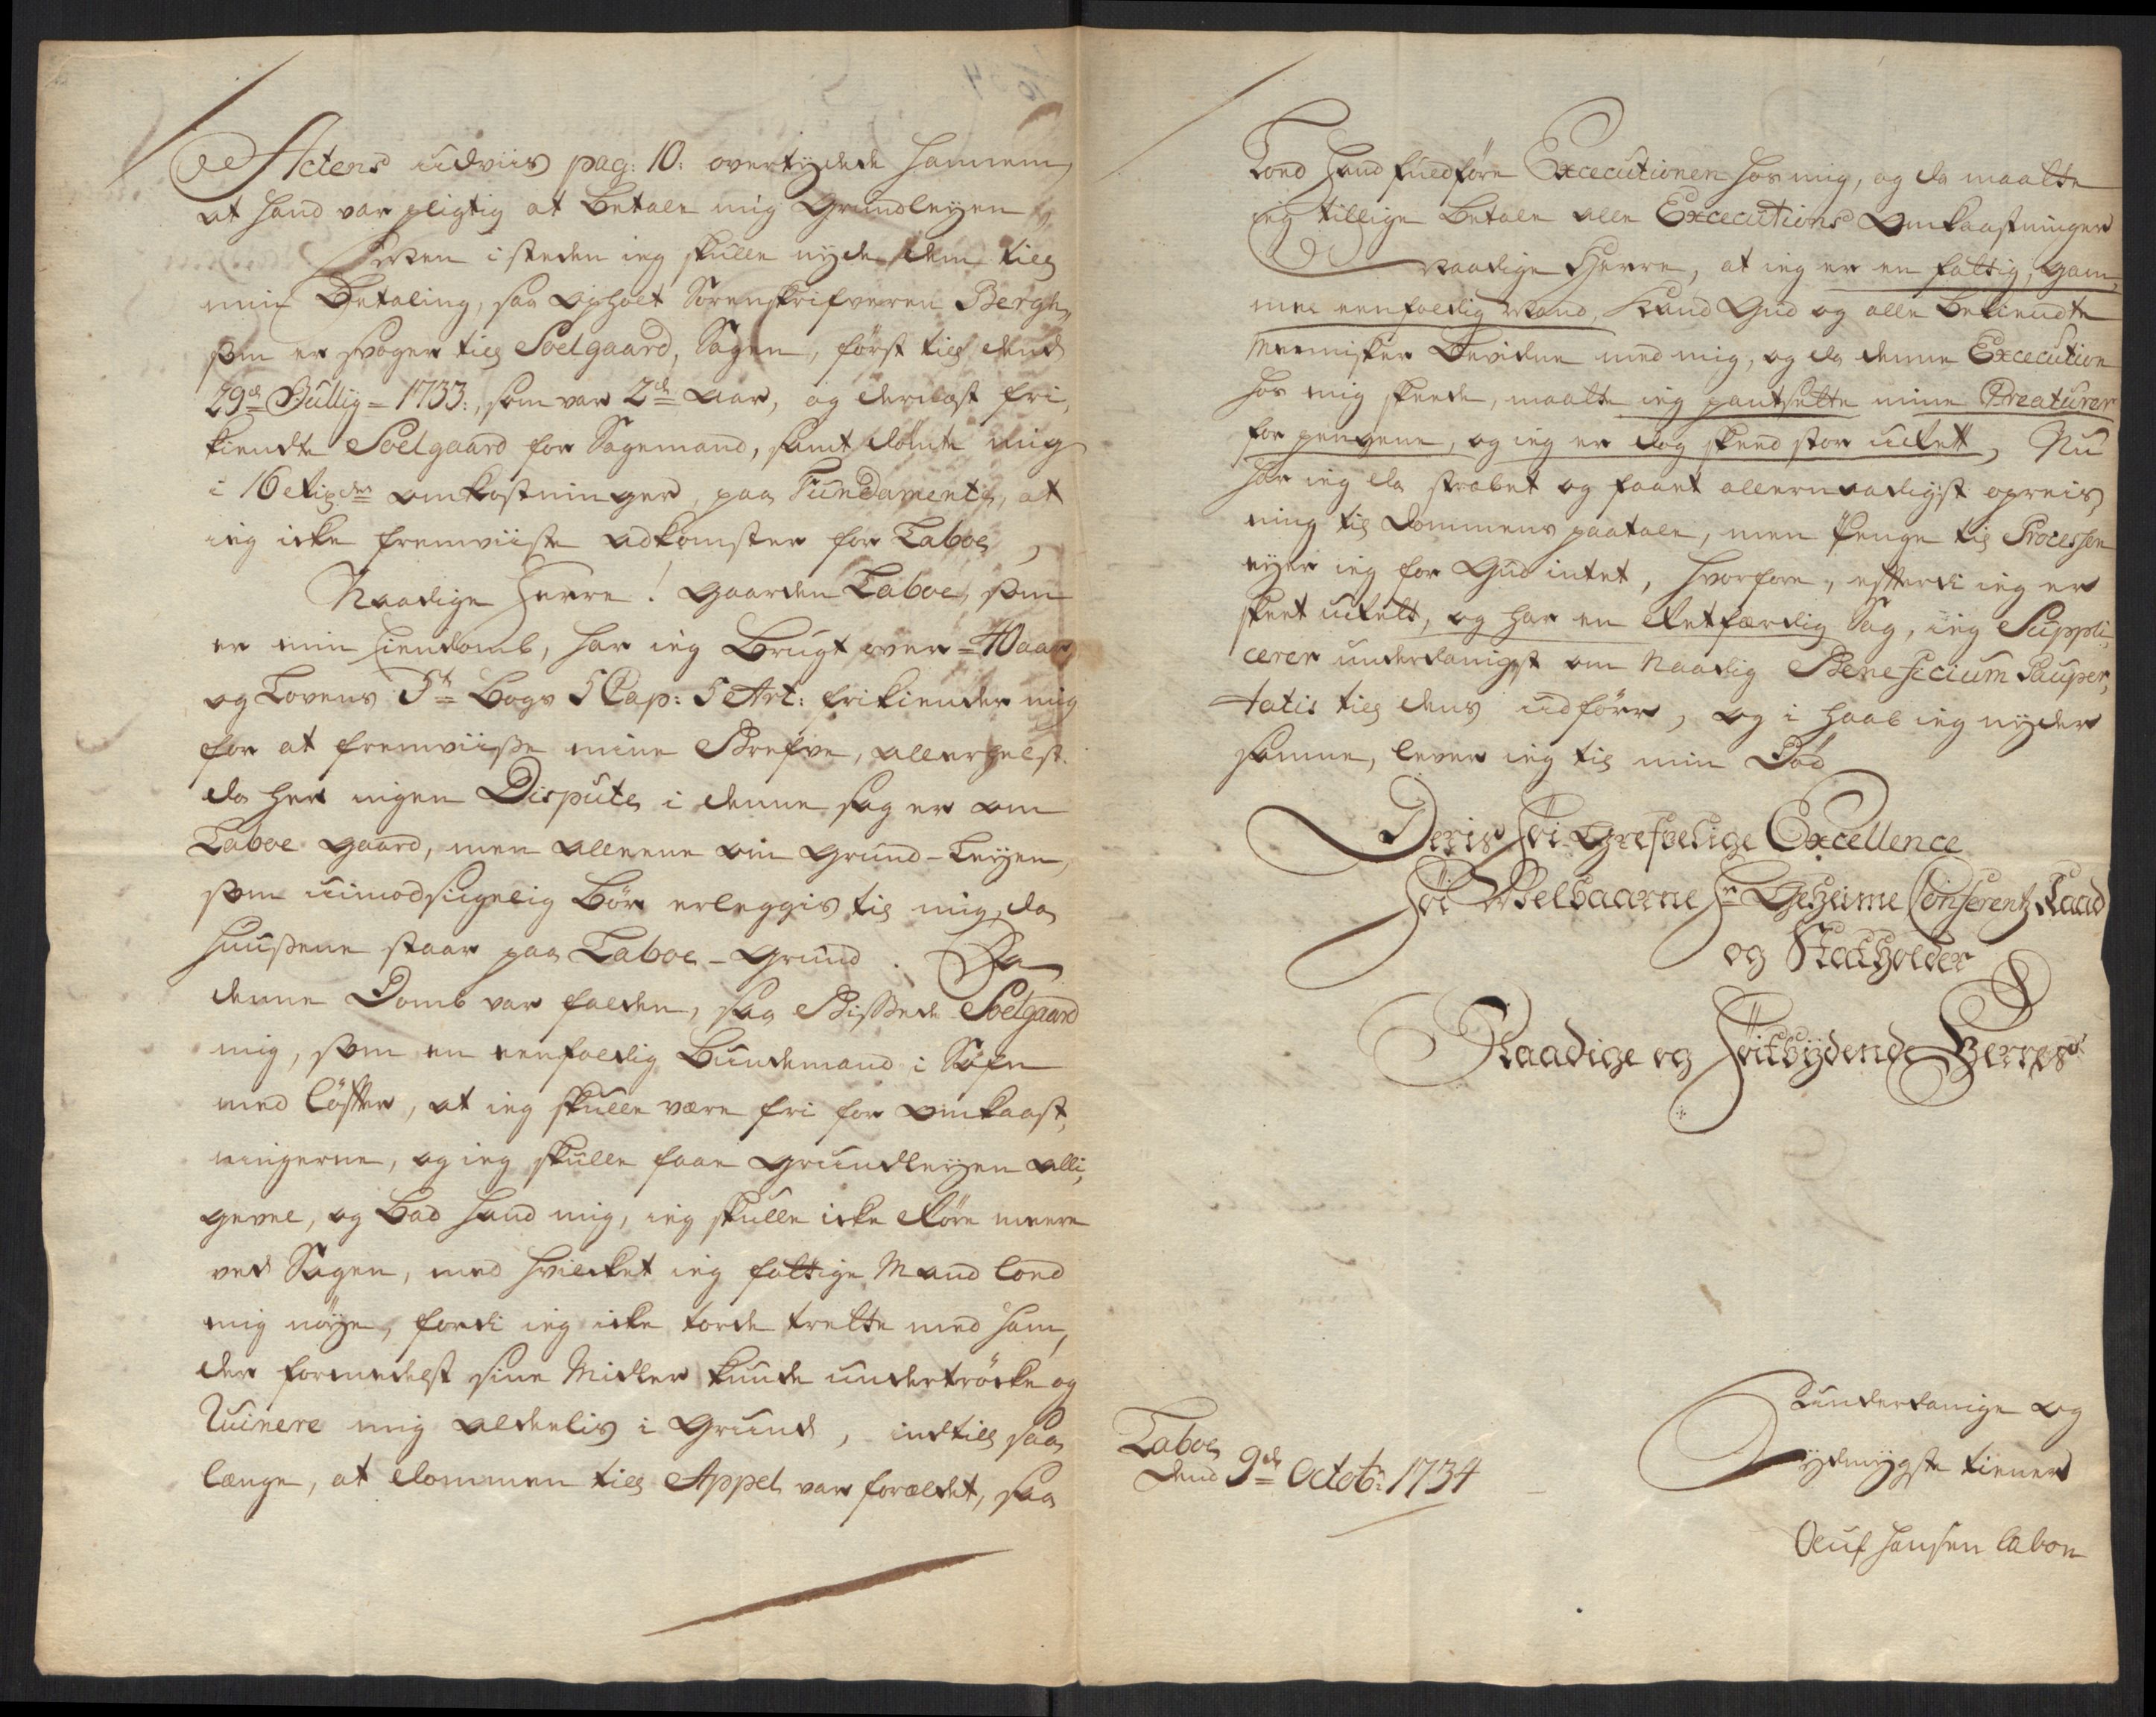 Actens udviis pag: 10: overtydede hannem,
at hand var pligtig at betale mig Grundleyen
Men i steden ieg skulle nyde dem till
min Betaling, saa opholt Sorenskrifveren Bergh,
som er svoger till Soelgaard, Sagen, först till dend
29de Jullÿ = 1733:, som var 2de Aar, og derilast fri,
kiendte Soelgaard for Sagemand, samt dömte mig
i 16 Rixdr omkostninger, paa Fundament, at
ieg icke fremviiste adkomster for Laboe,
Naadige Herre! Gaarden Laboe, som
er min Eiendomb, har ieg Brugt over = 40 aar
og Lovens 5te Bogs 5 Cap: 5 Art: frikiender mig
for at fremviisse mine Brefve, allerhelst
da her ingen Dispute i denne sag er om
Laboe gaard, men alleene om Grund-Leyen,
som uimodsigelig bör erleggis til mig, da
huussene staar paa Laboe-Grund. Da
denne Domb var falden, saa Bissede Soelgaard
mig, som en eenfoldig Bundemand i Söfn
med löfter, at ieg skulle være fri for omkaast,
ningerne, og ieg skulle faae Grundleyen alli,
gevel, og bad hand mig, ieg skulle icke Röre meere
ved Sagen, med hvilcket ieg fattige Mand loed
mig nöye, fordi ieg icke torde trette med ham,
der formedelst sine Midler kunde undertröcke og
Ruinere mig aldelis i Grund, indtill saa
længe, at dommen till Appel var forældet, saa
Loed hand fuldföre Excecutionen hos mig, og da maatte
ieg tillige betale alle Excecutions Omkaastninger
Naadige Herre, at ieg er en fattig, gam,
mel eenfoldig Mand, Kand Gud og alle bekiendte
Mennisker bevidne med mig, og da denne Excecution
hos mig skeede, maatte ieg pantsette mine Creaturer
for pengene, og ieg er dog skeed stor uret, Nu
har ieg da strabet og faaet allernaadigst opreis,
ning til Dommens paatale, men Penge til Processen
eyer ieg for Gud intet, hvorfore, efterdi ieg er
skeet urett, og har en Retfærdig Sag, ieg Suppli,
cerer underdanigst om Naadig Beneficium Pauper,
tatis till dens udförr, og i haab ieg nyder
samme, lever ieg til min Död
Deris Höi Grefvelige Excellence
Höi Velbaarne Hr Geheime Conferentz Raad
og Statholder
Naadige og Höitbydende Herres
Laboe
dend 9de Octobr: 1734
Underdanige og
Ydmygste tiener
Oluf Hansen Laboe